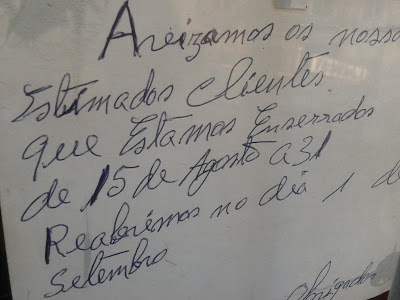 Aveizamos os nosso
Estimados clientes.
que Estamos Enserrados
de 15 de Agosto a 31
Reabrimos no dia 1 de
Setembro
Obrigados